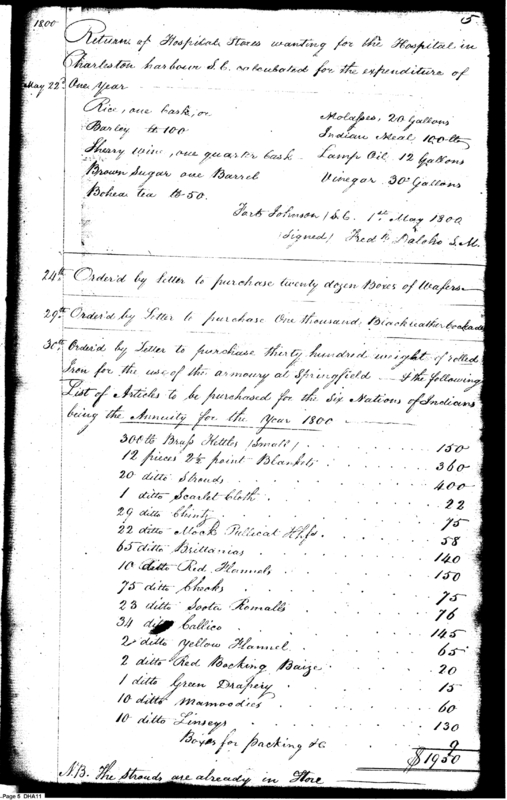 1800
5
Return of Hospital Stores wanting for the Hospital in
Charleston harbour S.C. calculated for the expenditure of
May 22d One Year
Rice, one cask, or
Barley lb 100
Sherry wine, one quarter cask
Brown Sugar one Barrel
Bohea tea lb 50.
Molasses, 20 Gallons
Indian Meal 100 lb
Lamp Oil 12 Gallons
Vinegar 30 Gallons
Fort Johnson S.C. 1st May 1800
(Signed) Fredk Dalcho S.M.
24th Order'd by letter to purchase twenty dozen Boxes of Wafers
29th Order'd by Letter to purchase One thousand Black leather cockades
30th Order'd by Letter to purchase thirty hundred weight of rolled
Iron for the use of the armoury at Springfield & the following
List of Articles to be purchased for the Six Nations of Indians
being the Annuity for the Year 1800
300 lb Brass Kettles (Small) 150
12 pieces 2½ point Blankets 360
20 ditto Strouds 400
1 ditto Scarlet Cloth 22
29 ditto Chintz 75
22 ditto Mock Pullicat Hkfs. 58
65 ditto Brittanias 140
10 ditto Red Flannels 150
75 ditto Checks 75
23 ditto Soota Romalls 76
34 ditto Callico 145
2 ditto Yellow Flannel 65
2 ditto Red Bocking Baize 20
1 ditto Green Drapery 15
10 ditto Mamoodies 60
10 ditto Linseys 130
Boxes for packing &c 9
$1950
N.B. The Strouds are already in Store
Page 5 DHA11